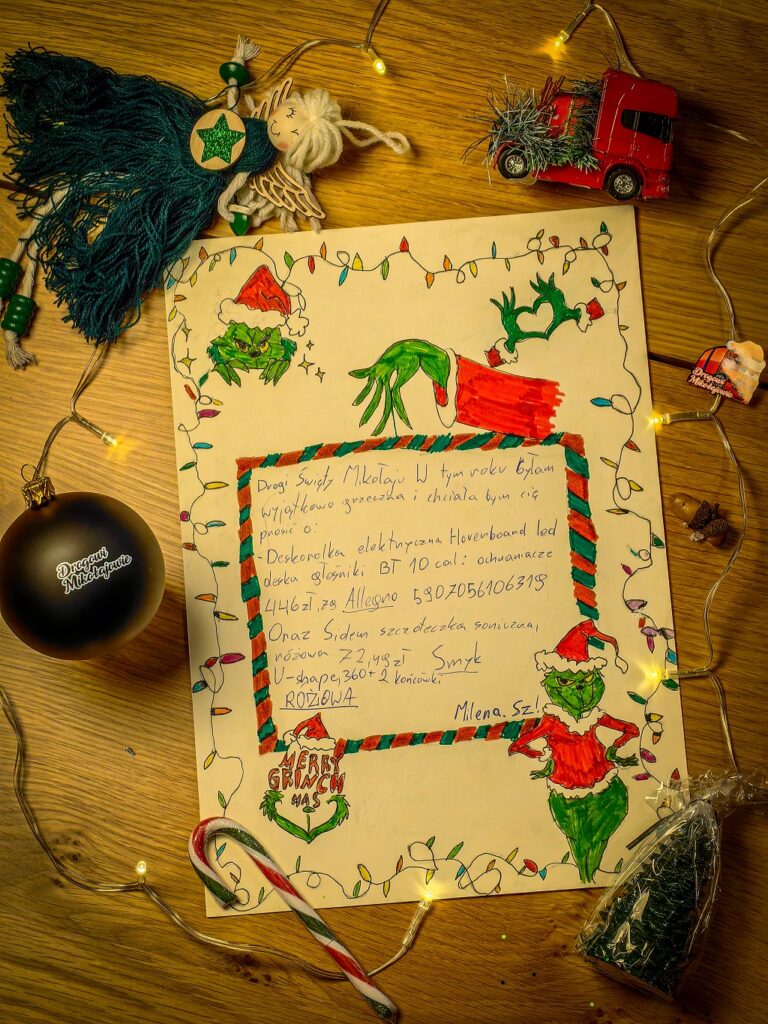 Drogowi
Mikołajowie
Drogowi
Mikołajowie
Drogi Święty Mikołaju W tym roku byłam
wyjątkowo grzeczna i chciała bym cię
prosić o:
- Deskorolka elektryczna Hoverboard led
deska głośniki BT 10 cal: ochraniacze
446zł,79 Allegro 5907056106319
Oraz Sidem szczoteczka soniczna,
różowa 72,49 zł Smyk
U-shape,360+2 końcówki
RÓŻOWA
Milena. Sz!
MERRY
GRINCH
MAS